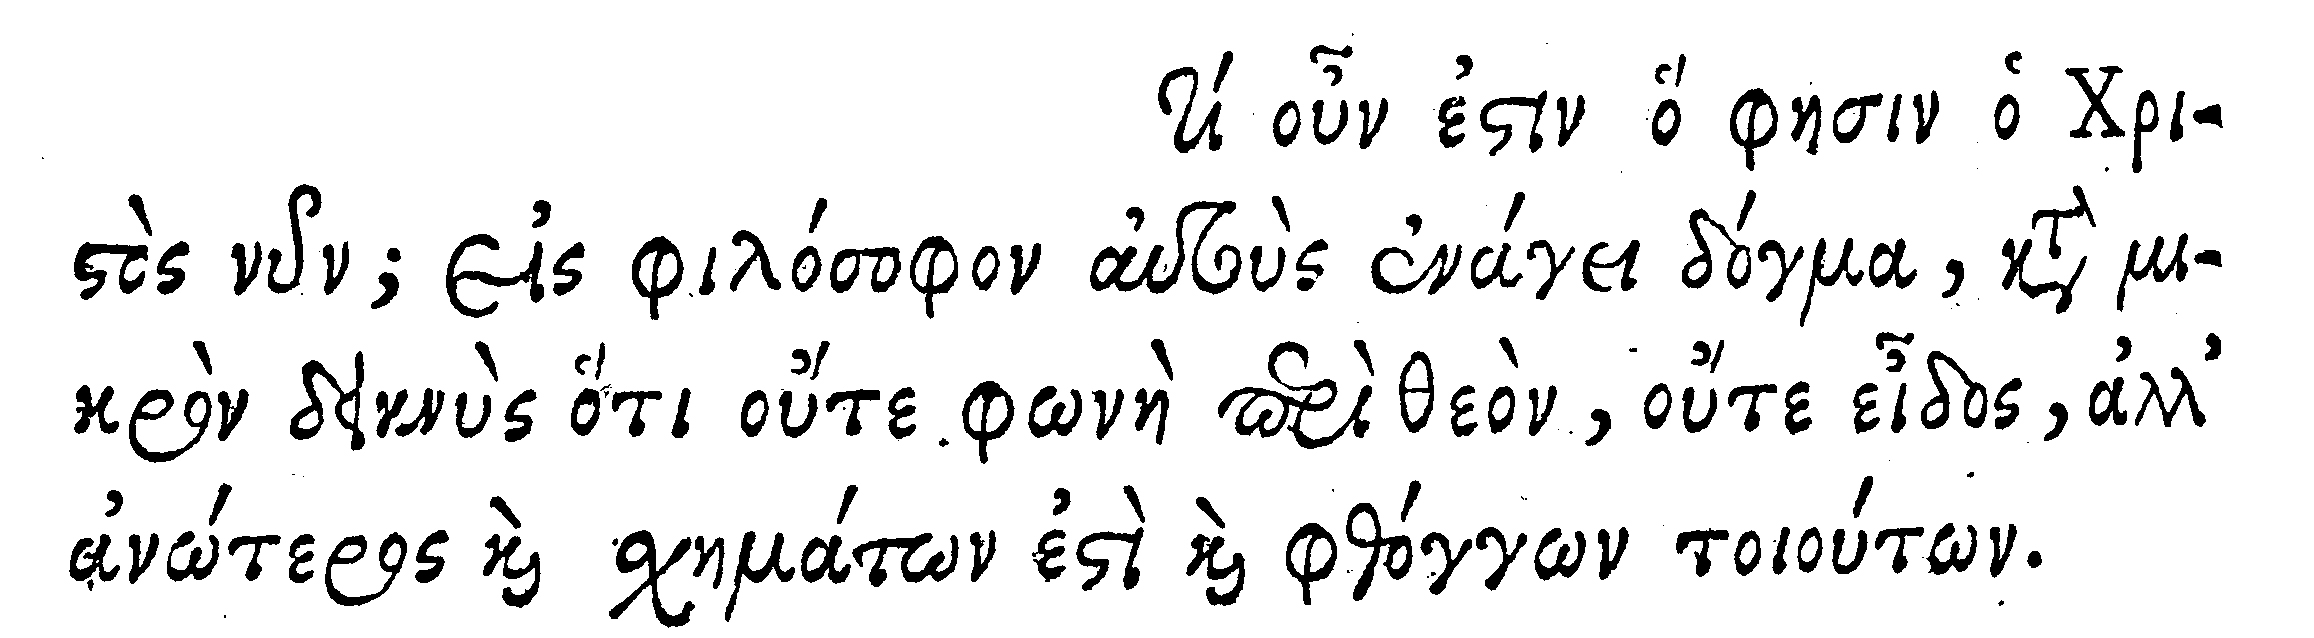 Τί οὖν ἐστιν ὅ φησιν ὁ Χρι-
στὸς νῦν; Εἰς φιλόσοφον αὐτοὺς ἐνάγει δόγμα, κατὰ μι-
κρὸν δεικνὺς ὅτι οὔτε φωνὴ περὶ θεὸν, οὔτε εἶδος, ἀλλ'
ἀνώτερος καὶ σχημάτων ἐστὶ καὶ φθόγγων τοιούτων.